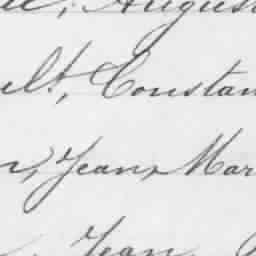 August
lt, Constan
n, Jean, Mar
Jean